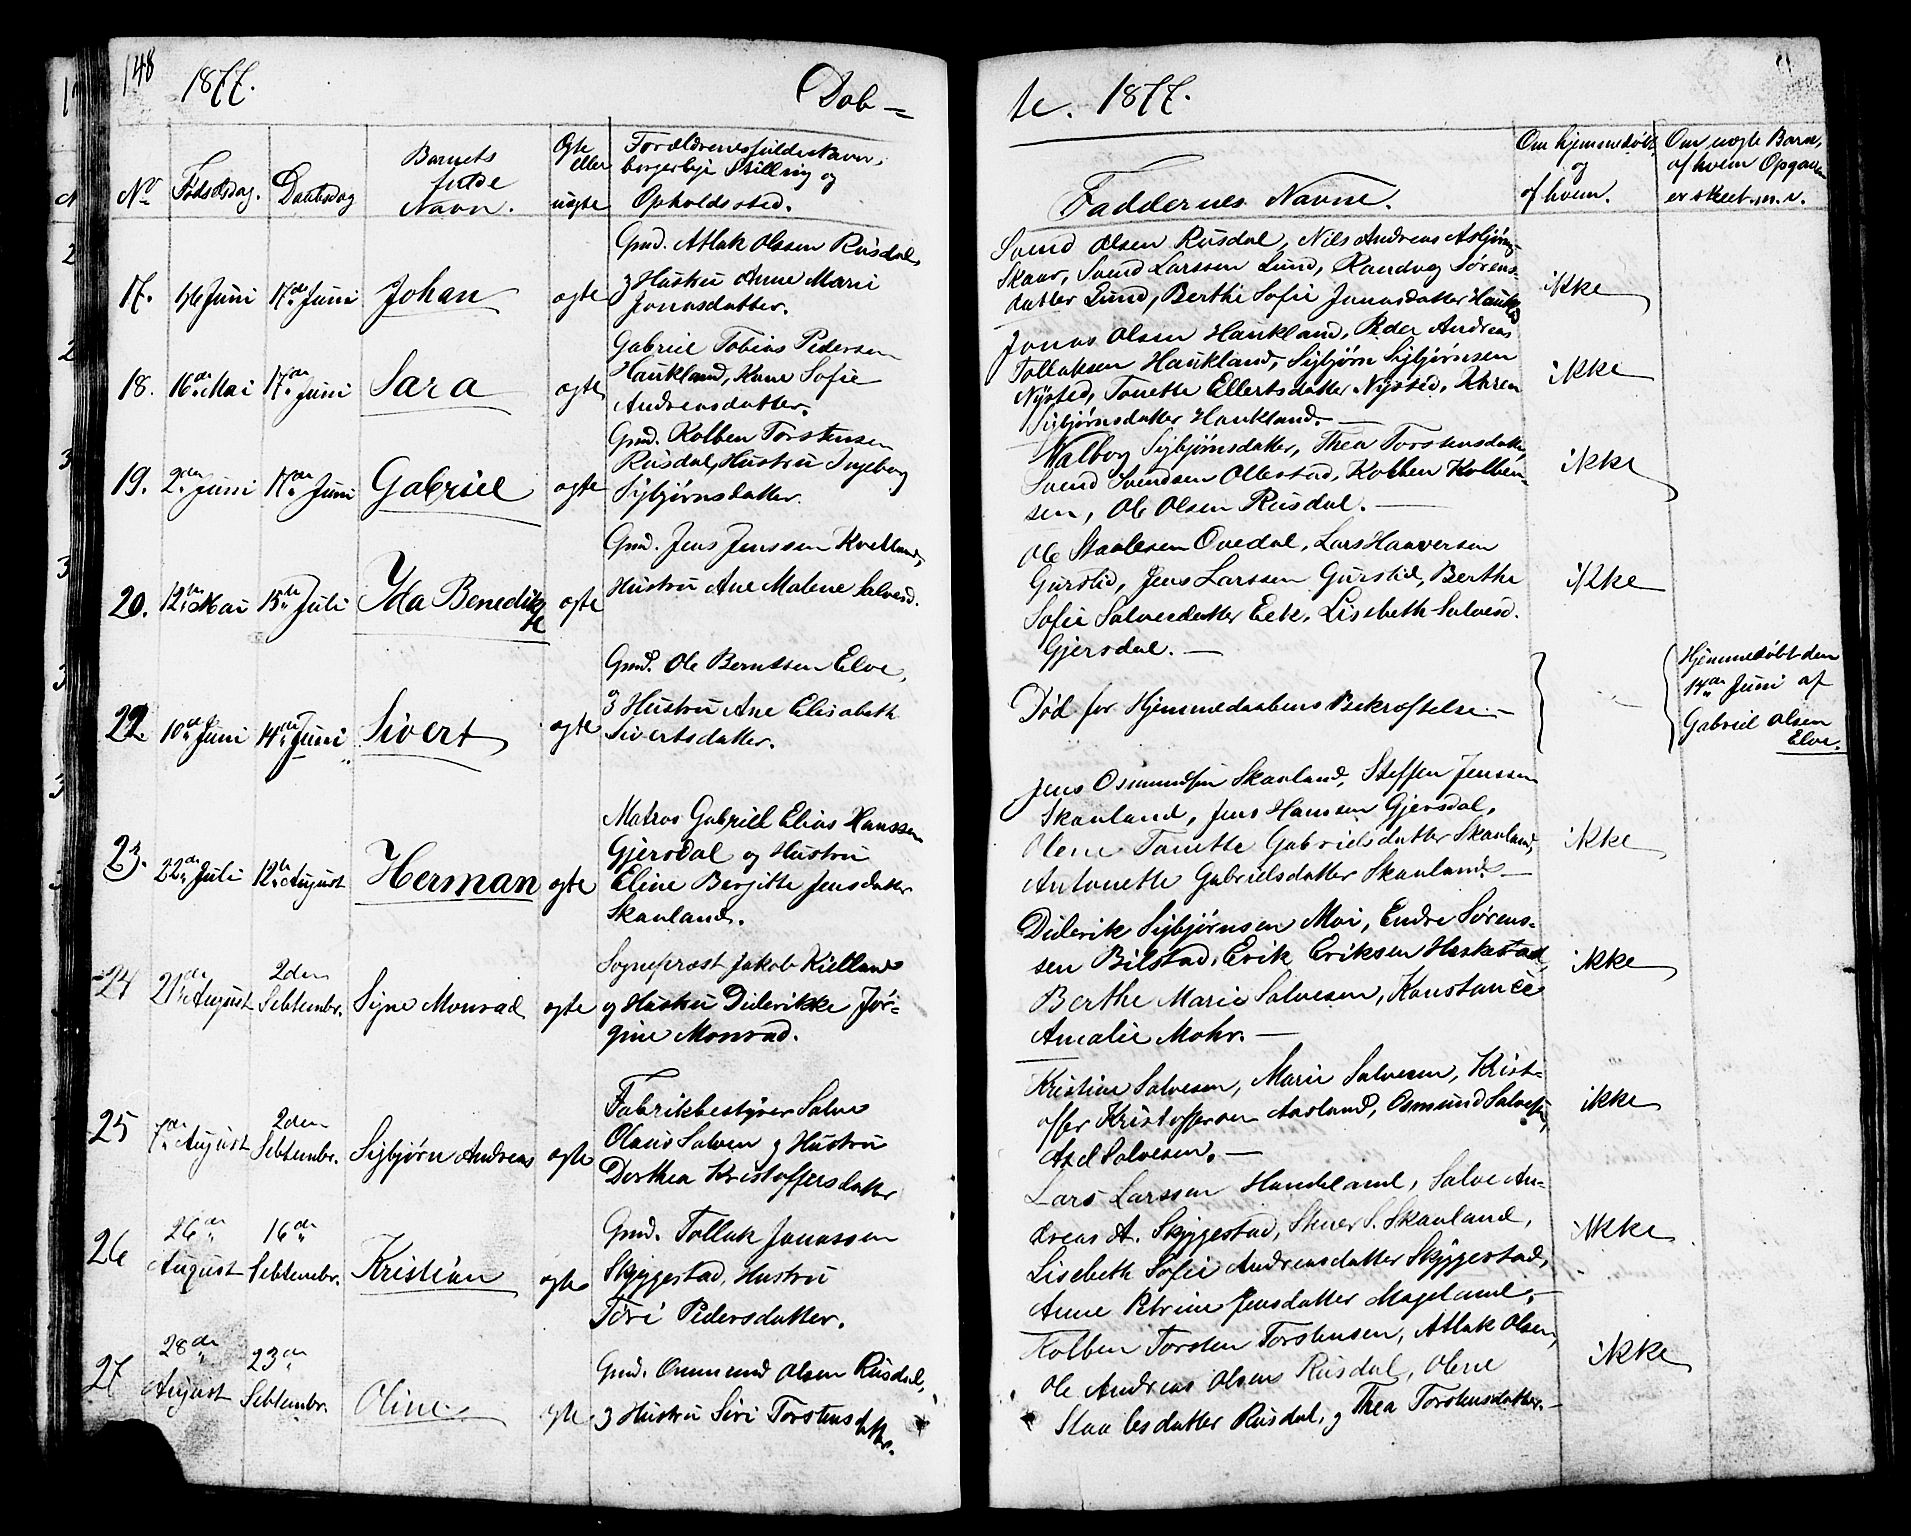 148
1877.
Døb-
No
Fødselsdag.
Daabsdag
Barnets
fulde
Navn.
Ægte
eller
uægte
Forældrenes fulde Navn,
borgerlige Stilling og
Opholdssted.
17.
17de Juni
Johan
ægte
Gmd. Atlak Olsen Rusdal,
og Hustru Anne Marie
Jonasdatter.
18.
16de Mai
17de Juni
Sara
ægte
Gabriel Tobias Pedersen
Haukland, Kone Sofie
Andreasdatter.
19.
2den Juni
17de Juni
Gabriel
ægte
Gmd. Kolben Torstensen
Rusdal, Hustru Ingeborg
Sigbjørnsdatter.
20.
12te Mai
15de Juli
Ida Benedik
te
ægte
Gmd. Jens Jenssen Kvelland,
Hustru Ane Malene Salvesd.
22.
10de Juni
14de Juni
Sivert
ægte
Gmd. Ole Berntsen Elve,
og Hustru Ane Elisabeth
Sivertsdatter.
23.
22de Juli
12te August
Herman
ægte
Matros Gabriel Elias Hanssen
Gjersdal og Hustru
Eline Bergitte Jensdatter
Skanland.
24
21de August
2den
Sebtembr.
Signe Monrad
ægte
Sognepræst Jakob Kielland
og Hustru Diderikke Jør-
gine Monrad.
25
7de August
2den
Sebtembr.
Sigbjørn Andreas
ægte
Fabrikbestyrer Salve
Olaus Salvesen og Hustru
Dorthea Kristoffersdatter
26
26de
August
16de
Sebtembr.
Kristian
ægte
Gmd. Tollak Jonassen
Skyggestad, Hustru
Tori Pedersdatter.
27
28de
August
23de
Sebtembr.
Oline
ægte
Gmd. Ommund Olsen Rusdal,
og Hustru Siri Torstensdatter.
te. 1877.
Faddernes Navne.
Om hjemmedøbt
og
af hvem.
Om uægte Barn,
af hvem Opgaven
er skeet m. v.
Svend Olsen Rusdal, Nils Andreas Asbjørns
Skaar, Svend Larssen Lund, Randveg Sørens-
datter Lund, Berthe Sofie Jonasdatter
ikke
Jonas Olsen Haukland, Peder Andreas
Tollaksen Haukland, Sigbjørn Sigbjørnsen
Nysted, Tonette Ellertsdatter Nysted, Karen
Sigbjørnsdatter Haukland.-
ikke
Valborg Sigbjørnsdatter, Thea Torstensdatter,
Svend Svendsen Ollestad, Kolben Kolben-
sen, Ole Olsen Rusdal.-
ikke
Ole Staalesen Ovedal, Lars Haaversen
Gurslid, Jens Larssen Gurslid, Berthe
Sofie Salvesdatter Eeke, Lisebeth Salvesd.
Gjersdal.-
ikke
Død før Hjemmedaabens Bekræftelse.-
Hjemmedøbt den
14de Juni af
Gabriel Olsen
Elve.
Jens Osmundsen Skanland, Steffen Jenssen
Skanland, Jens Hanssen Gjersdal,
Olene Tonette Gabrielsdatter Skanland,
Antonette Gabrielsdatter Skanland-
ikke
Diderik Sigbjørnsen Moi, Endre Sørens-
sen Bilstad, Erik Eriksen Heskestad,
Berthe Marie Salvesen, Konstance
Amalie Mohr.-
ikke
Kristine Salvesen, Marie Salvesen, Krist-
offer Kristoffersen Aarland, Osmund Salvesen,
Axel Salvesen.-
ikke
Lars Larssen Haukland, Salve An-
dreas A. Skyggestad, S. Skanland,
Lisebeth Sofie Andreasdatter Skyggestad,
Anne Petrine Jensdatter Mageland,-
ikke
Kolben Torsten Torstensen, Atlak Olsen,
Ole Andreas Olsens Rusdal, Olene
Staalesdatter Rusdal, og Thea Torstensdatter.-
ikke